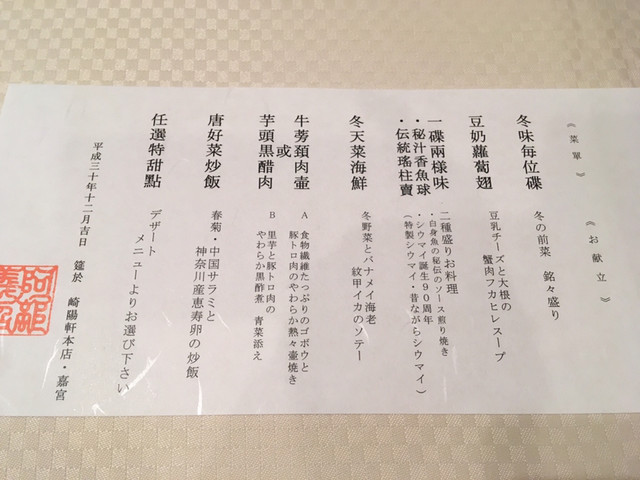 《菜單》
《お献立》
冬味毎位碟
冬の前菜 銘々盛り
豆奶蘿蔔翅
豆乳チーズと大根の
蟹肉フカヒレスープ
一碟兩様味
・秘汁香魚球
・伝統瑤柱賣
二種盛りお料理
・白身魚の秘伝のソース煎り焼き
・シウマイ誕生90周年
(特製シウマイ・昔ながらシウマイ)
冬天菜海鮮
冬野菜とバナメイ海老
紋甲イカのソテー
牛蒡頚肉壷
或
芋頭黒醋肉
A 食物繊維たっぷりのゴボウと
豚トロ肉のやわらか熱々壷焼き
B 里芋と豚トロ肉の
やわらか黒酢煮 青菜添え
唐好菜炒飯
春菊・中国サラミと
神奈川産恵寿卵の炒飯
任選特甜點
デザート
メニューよりお選び下さい
平成三十年十二月吉日 筵於 崎陽軒本店・嘉宮